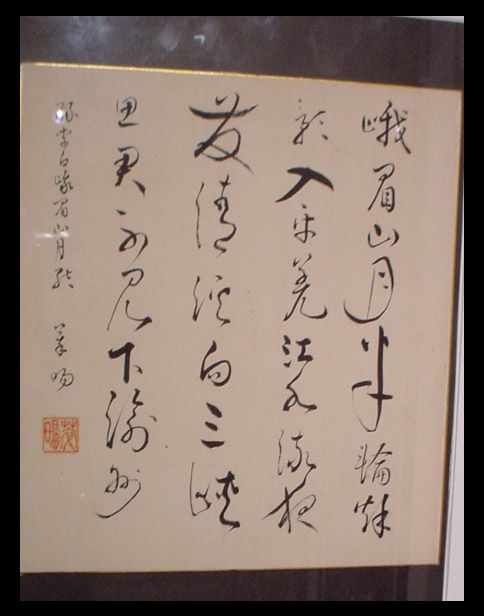 峨眉山月半輪秋
影入平羌江水流夜
發清溪向三峽
思君不見下渝州
錄李白峨眉山月歌